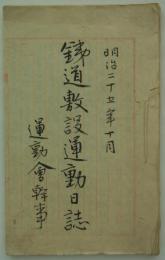 明治二十五年十月
鉄道敷設運動日誌
運動會幹事